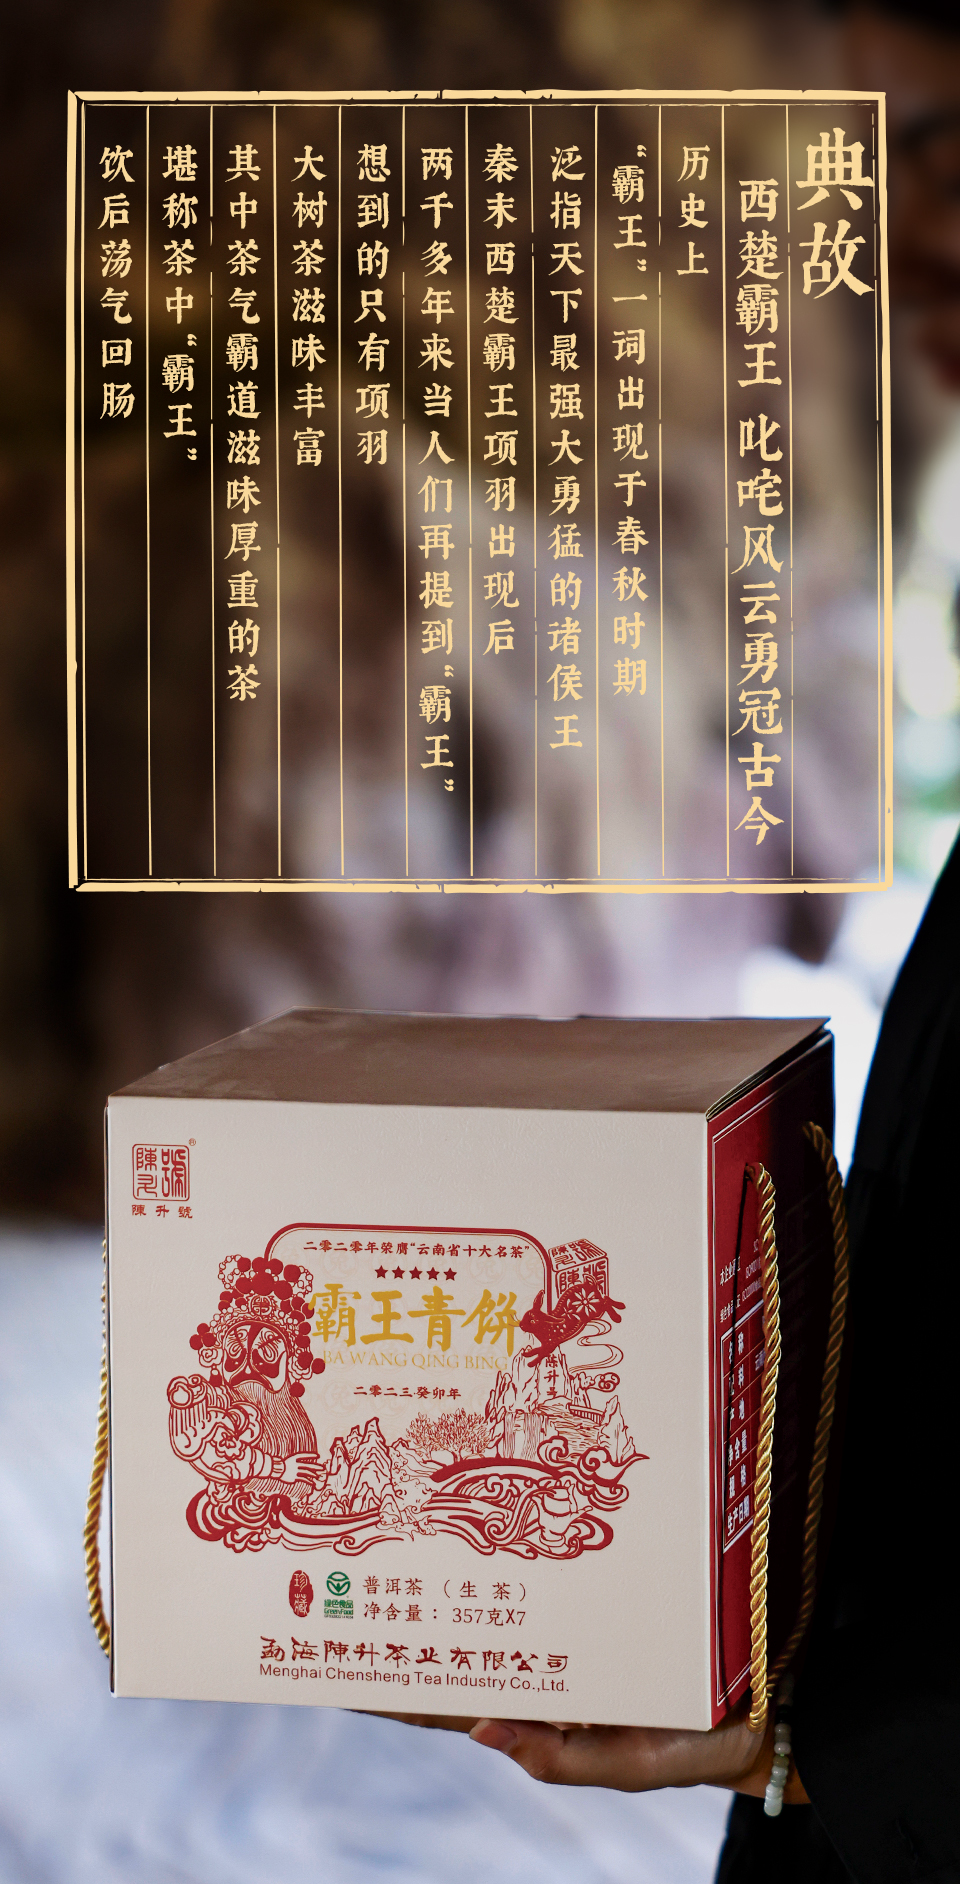 典故
西楚霸王 叱咤风云勇冠古今
历史上
“霸王”一词出现于春秋时期
泛指天下最强大勇猛的诸侯王
秦末西楚霸王项羽出现后
两千多年来当人们再提到“霸王”
想到的只有项羽
大树茶滋味丰富
其中茶气霸道滋味厚重的茶
堪称茶中“霸王”
饮后荡气回肠
陳升號
®
陳升號
二零二零年荣膺“云南省十大名茶”
霸王青餅
BA WANG QING BING
二零二三·癸卯年
陳升号
珍藏
绿色食品
GreenFood
普洱茶（生 茶）
净含量：357克X7
勐海陳升茶业有限公司
Menghai Chensheng Tea Industry Co.,Ltd.
产 地
净含量
规 格
生产日期